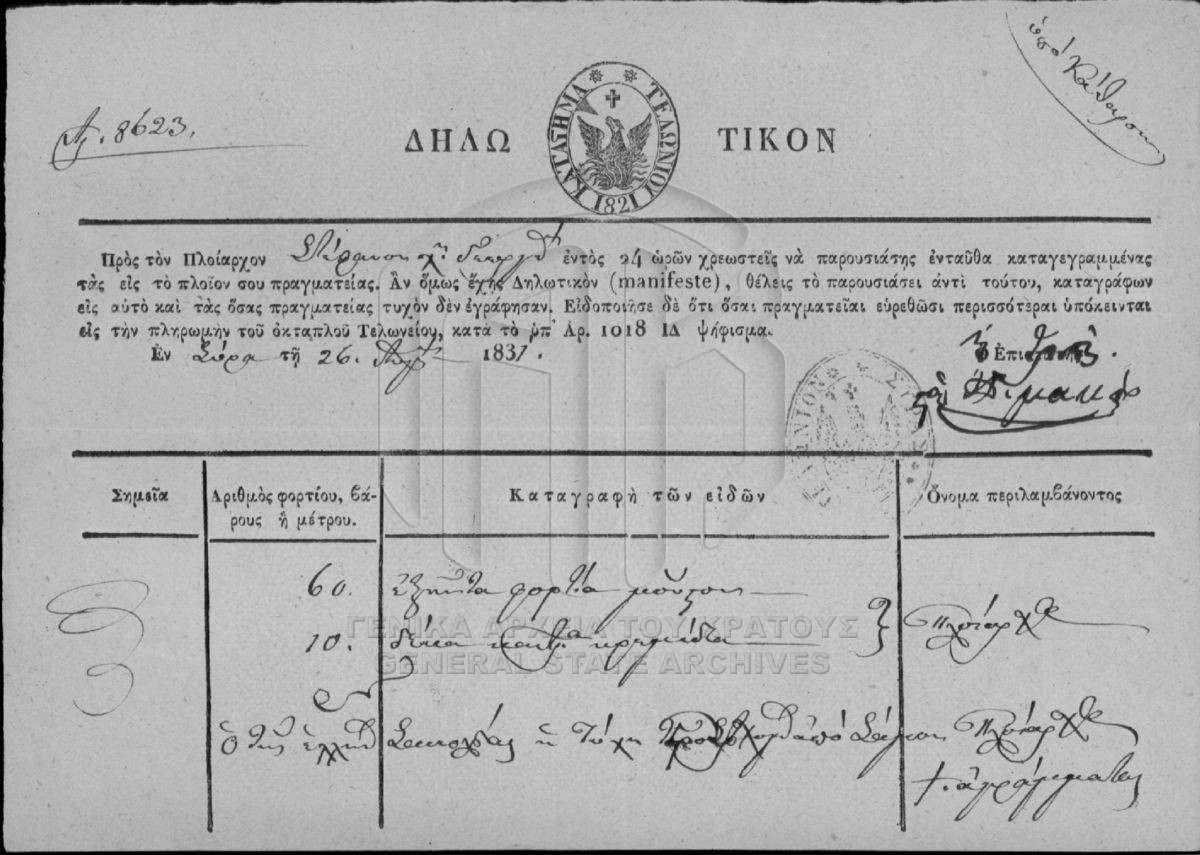 ὑπὸ Κάθαρσιν
Ἀρ. 8623.
ΔΗΛΩ ΤΙΚΟΝ
ΚΑΤΑΣΤΗΜΑ ΤΕΛΩΝΙΟΥ 1821
Πρὸς τὸν Πλοίαρχον ἐντὸς 24 ὡρῶν χρεωστεῖς νὰ παρουσιάσῃς ἐνταῦθα καταγεγραμμένας
τὰς εἰς τὸ πλοῖον σου πραγματείας. Ἂν ὅμως ἔχῃς Δηλωτικὸν (manifeste), θέλεις τὸ παρουσιάσει ἀντὶ τούτου, καταγράφων
εἰς αὐτὸ καὶ τὰς ὅσας πραγματείας τυχὸν δὲν ἐγράφησαν. Εἰδοποιῆσε δὲ ὅτι ὅσαι πραγματεῖαι εὑρεθῶσι περισσότεραι ὑπόκεινται
εἰς τὴν πληρωμὴν τοῦ ὀκταπλοῦ Τελωνείου, κατὰ τὸ ὑπ' Ἀρ. 1018 ΙΔ ψήφισμα.
Ἐν Σύρα τῇ 26. 1831.
Σημεῖα
Ἀριθμὸς φορτίου, βά-
ρους ἢ μέτρου.
Καταγραφὴ τῶν εἰδῶν
Ὄνομα περιλαμβάνοντος
60. ἑξῆντα φορτία
10. δέκα κρεμίδια
Πλοίαρχος
ΓΕΝΙΚΑ ΑΡΧΕΙΑ ΤΟΥ ΚΡΑΤΟΥΣ
GENERAL STATE ARCHIVES
ὁ τῆς ἑλλην ἡ Τύχη ἀπὸ Πλοίαρχος
ἀγράμματος